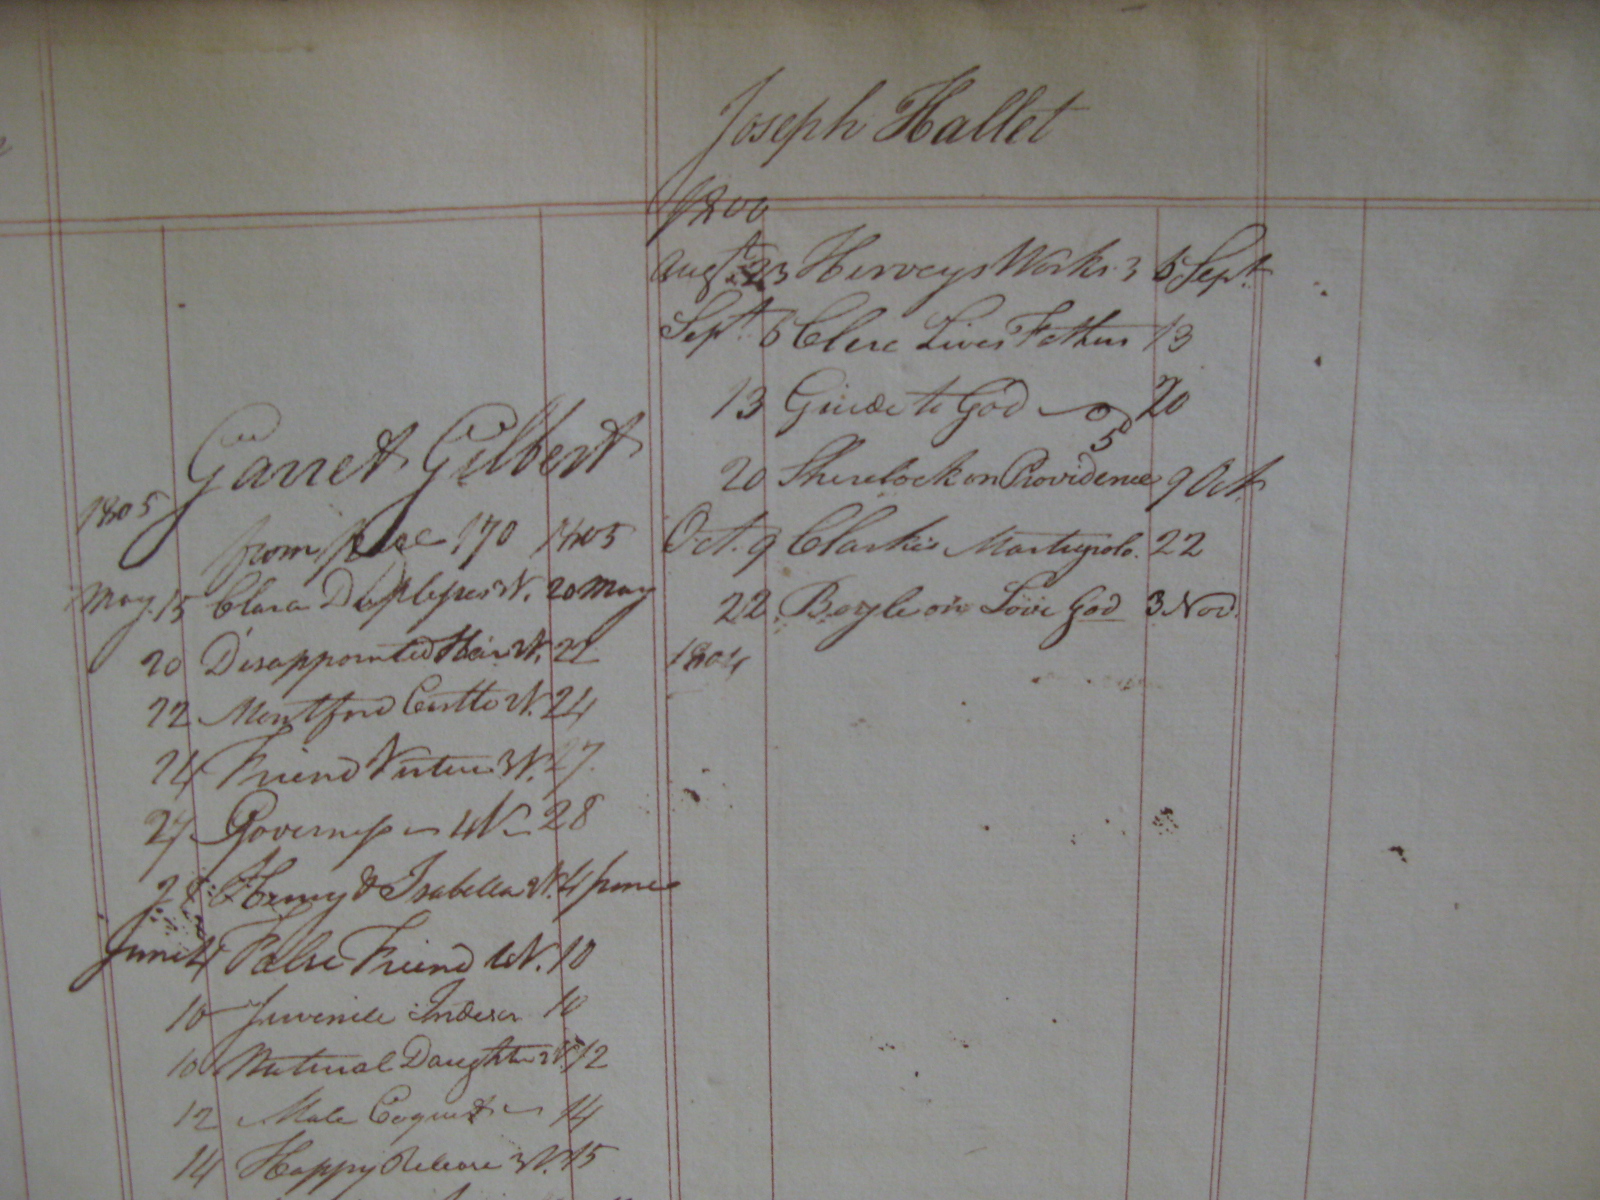 Garret Gilbert
1805
from page 170 1805
May 15 Clara Duplessis V. 20 May
20 Disappointed Heir 2V. 22
22 Montford Castle 2V. 24
24 Friend Virtue 3V. 27
27 Governess 4V 28
28 Henry & Isabella 2V. 4 June
June 4 False Friend 4V. 10
10 Juvenile Indes 10
10 Natural Daughter 2V. 12
12 Male Coquet 14
14 Happy Release 3V. 15
Joseph Hallet
1800
Augt. 23 Herveys Works 3 6 Sept
Sept. 6 Clerc Lives Fathers 13
13 Guide to God 20
5
20 Sherlock on Providence 9 Oct
Oct. 9 Clarkes Martyrolo. 22
22 Boyle on Love God 3 Nov.
1804